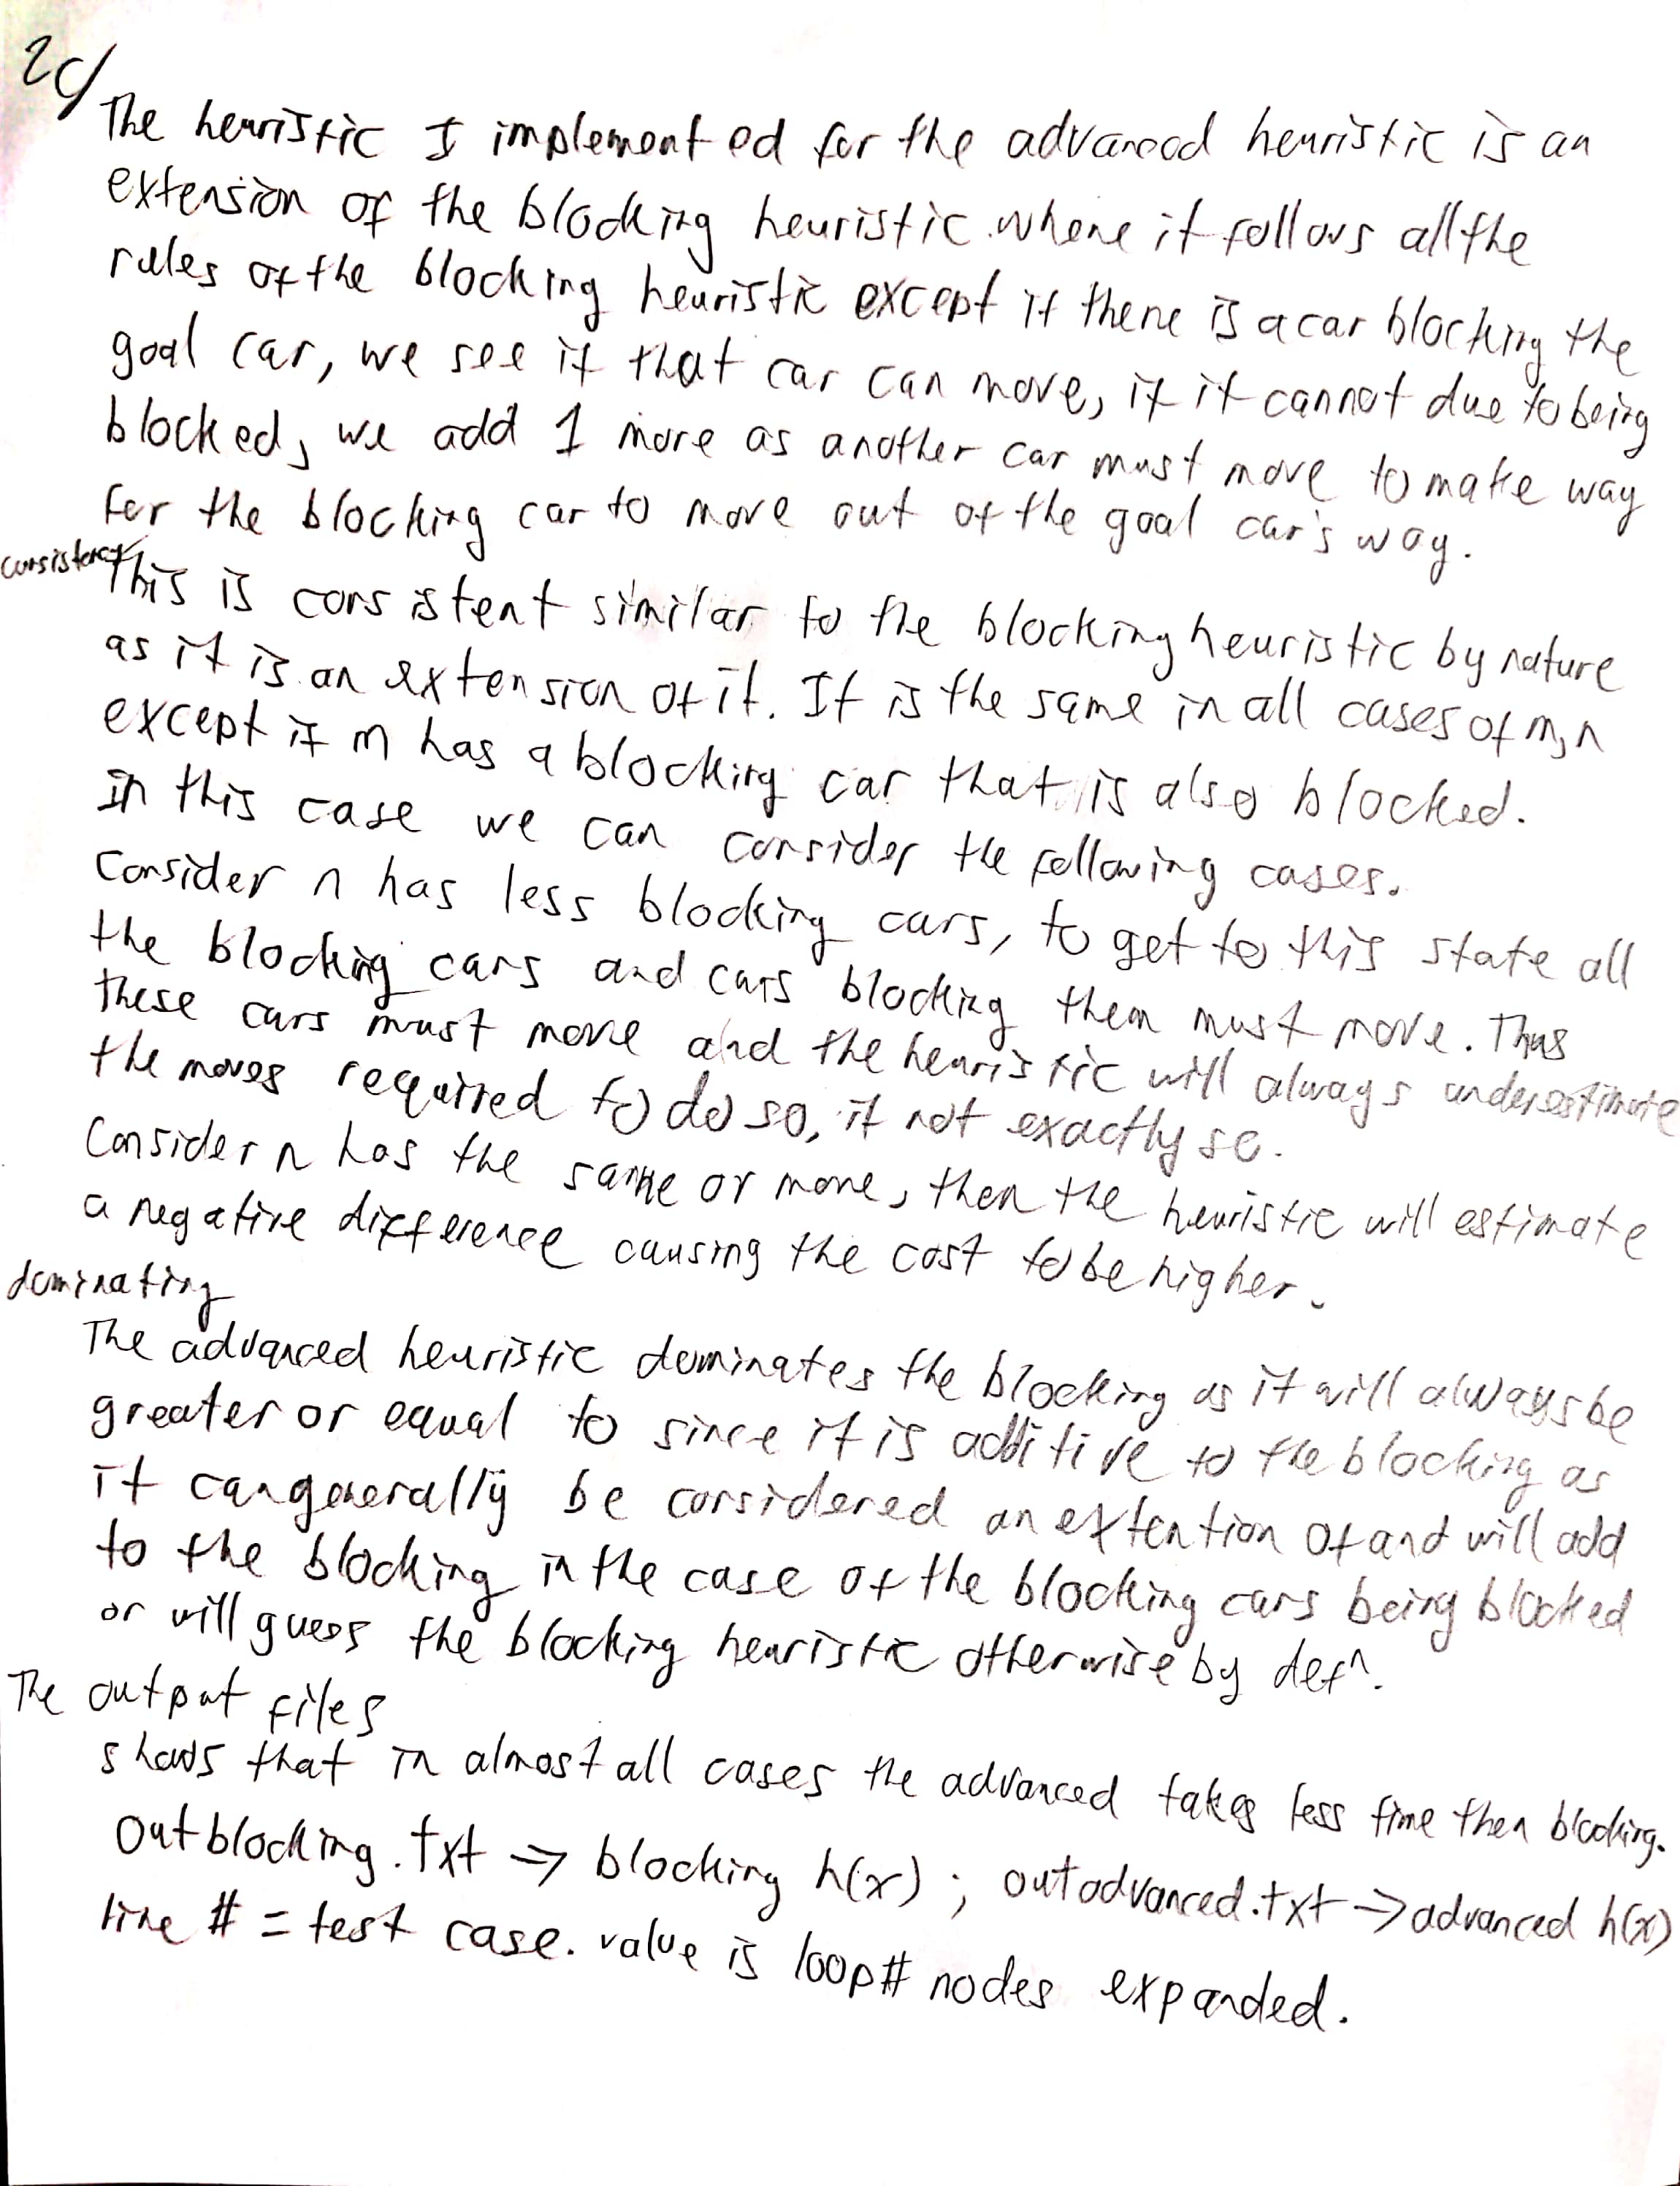 2c/
The heuristic I implemented for the advanced heuristic is an
extension of the blocking heuristic where it follows all the
rules of the blocking heuristic except if there is a car blocking the
goal car, we see if that car can move, if it cannot due to being
blocked, we add 1 more as another car must move to make way
for the blocking car to move out of the goal car's way.
consistency
This is consistent similar to the blocking heuristic by nature
as it is an extension of it. It is the same in all cases of m,n
except if m has a blocking car that is also blocked.
In this case we can consider the following cases.
Consider n has less blocking cars, to get to this state all
the blocking cars and cars blocking them must move. Thus
these cars must move and the heuristic will always underestimate
the moves required to do so, if not exactly so.
Consider n has the same or more, then the heuristic will estimate
a negative difference causing the cost to be higher.
dominating
The advanced heuristic dominates the blocking as it will always be
greater or equal to since it is additive to the blocking as
it can generally be considered an extention of and will add
to the blocking in the case of the blocking cars being blocked
or will guess the blocking heuristic otherwise by defn.
The output files
shows that in almost all cases the advanced takes less time then blocking.
Outblocking.txt => blocking h(x) ; outadvanced.txt -> advanced h(x)
line # = test case. value is loop# nodes expanded.